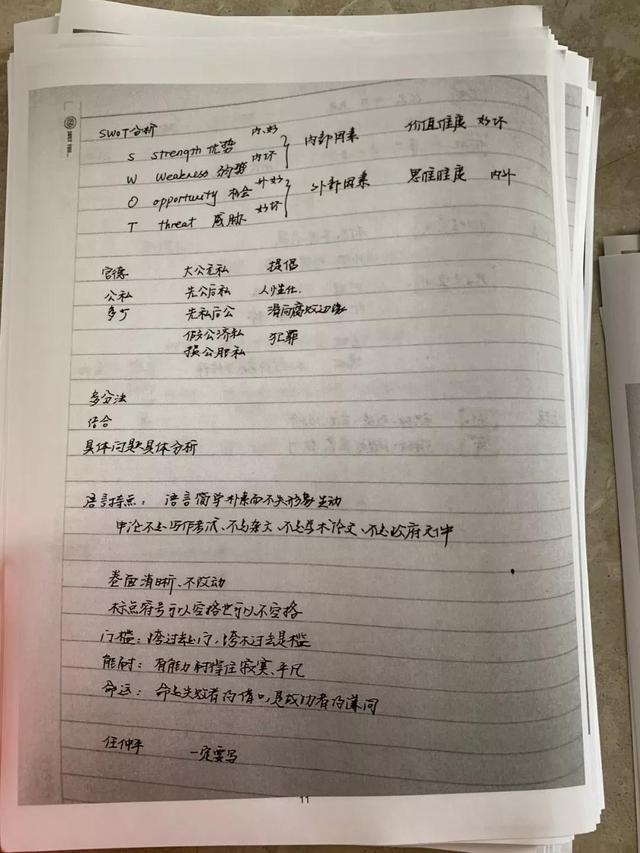 SWOT分析
S strength 优势 内、好 内部因素 价值维度 好坏
W weakness 弱势 内坏
O opportunity 机会 外好 外部因素 思维维度 内外
T threat 威胁
官德 大公无私 提倡
公私 先公后私 人性化.
多少 先私后公 滑向腐败边缘
假公济私 犯罪
损公肥私
多分法
结合
具体问题具体分析
语言特点: 语言简单朴素而不失形象生动
申论不是写作考试、不是杂文、不是学术论文、不是政府文件
卷面清晰、不改动
标点符号可以空格也可以不空格
门槛:跨过去是门,跨不过去是槛
能耐:有能力耐得住寂寞、平凡
命运:命是失败者的借口,是成功者的谦词
任仲平 一定要写
11